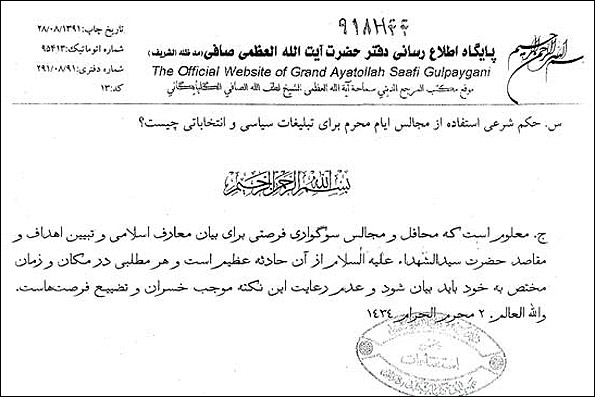 ۹۱۸۲۲
تاریخ چاپ: ۲۸/۰۸/۱۳۹۱
شماره اتوماتیک: ۹۵۴۱۳
شماره دفتری: ۲۹۱/۰۸/۹۱
کد: ۱۳
بسم الله الرحمن الرحیم
پایگاه اطلاع رسانی دفتر حضرت آیت الله العظمی صافی (مد ظله الشریف)
The Official Website of Grand Ayatollah Saafi Gulpaygani
موقع مکتب المرجع الدینی سماحة آیة الله العظمی الشیخ لطف الله الصافی الگلپایگانی
س. حکم شرعی استفاده از مجالس ایام محرم برای تبلیغات سیاسی و انتخاباتی چیست؟
بسم الله الرحمن الرحیم
ج. معلوم است که محافل و مجالس سوگواری فرصتی برای بیان معارف اسلامی و تبیین اهداف و
مقاصد حضرت سیدالشهداء علیه السلام از آن حادثه عظیم است و هر مطلبی در مکان و زمان
مختص به خود باید بیان شود و عدم رعایت این نکته موجب خسران و تضییع فرصت‌هاست.
والله العالم. ۲ محرم الحرام ۱۴۳۴
استفتائات